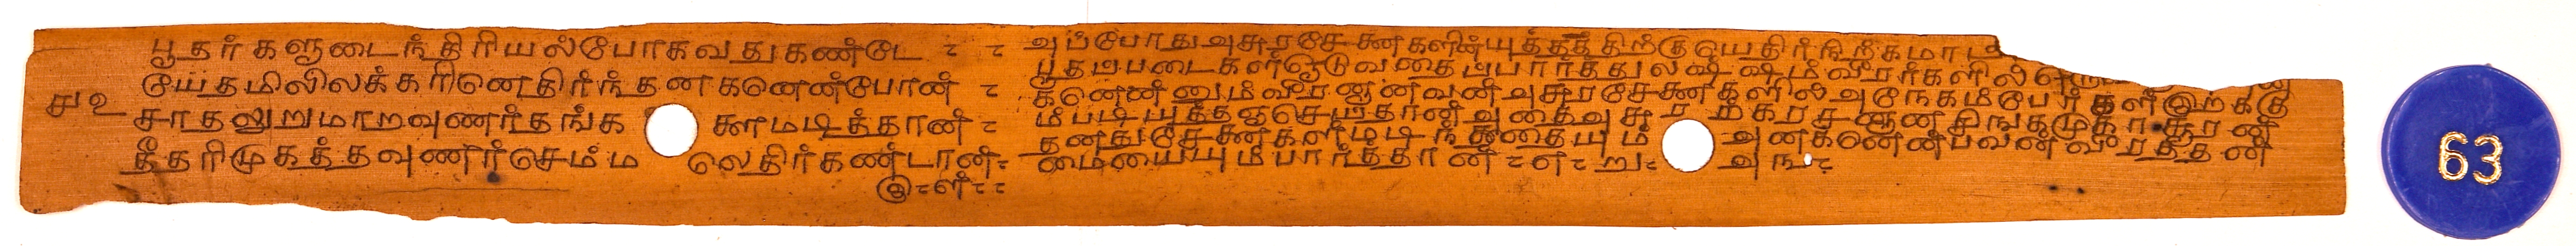 பூதர்களுடைந்திரியல்போகவதுகண்டே
யேதமிலிலக்கரினெதிர்ந்தனகனெண்போன்
சாதலுறுமாறவுணர்தங்க ளைமடித்தான்
தீதரிமுகத்தவுணர்செம்ம லெதிர்கண்டான்
அப்போதுஅசுரசேனைகளின்யுத்தத்திற்குயெதிர்நிற்கமாட
பூதப்படைகள்ஓடுவதைப்பார்த்துலஷ்ஷம்வீரர்களில்
கனெண்னும்வீரனானவன்அசுரசேனைகளில்அநேகம்பேர்களிறக்கு
ம்படியுத்தஞ்செய்தான்அதைஅசுர
தனதுசேனைகள்மடிந்ததையும் அனகனெண்பவன்வீரத்தன்
மையையும்பார்த்தான்
63